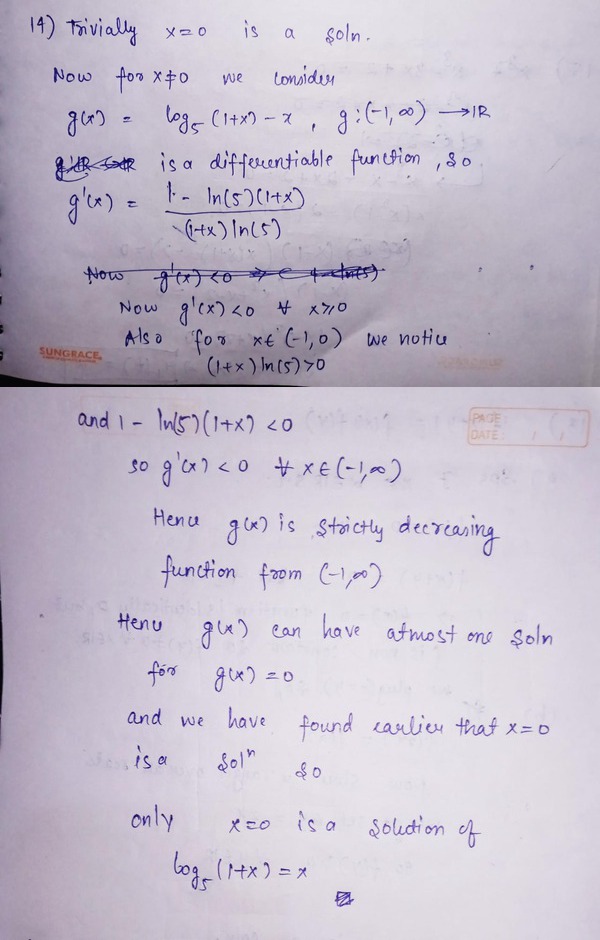 14) Trivially x=0 is a soln.
Now for x≠0 we consider
g(x) = log₅ (1+x) - x, g:(-1,∞) → IR
is a differentiable function, so
g'(x) = 1 - ln(5)(1+x) / (1+x) ln(5)
Now g'(x) < 0
Now g'(x) < 0 ∀ x≥0
Also for x∈(-1,0) we notice
(1+x) ln(5) > 0
SUNGRACE
and 1 - ln(5)(1+x) < 0
PAGE:
DATE:
so g'(x) < 0 ∀ x∈(-1,∞)
Hence g(x) is strictly decreasing
function from (-1,∞)
Hence g(x) can have atmost one soln
for g(x) = 0
and we have found earlier that x=0
is a solⁿ so
only x=0 is a solution of
log₅ (1+x) = x